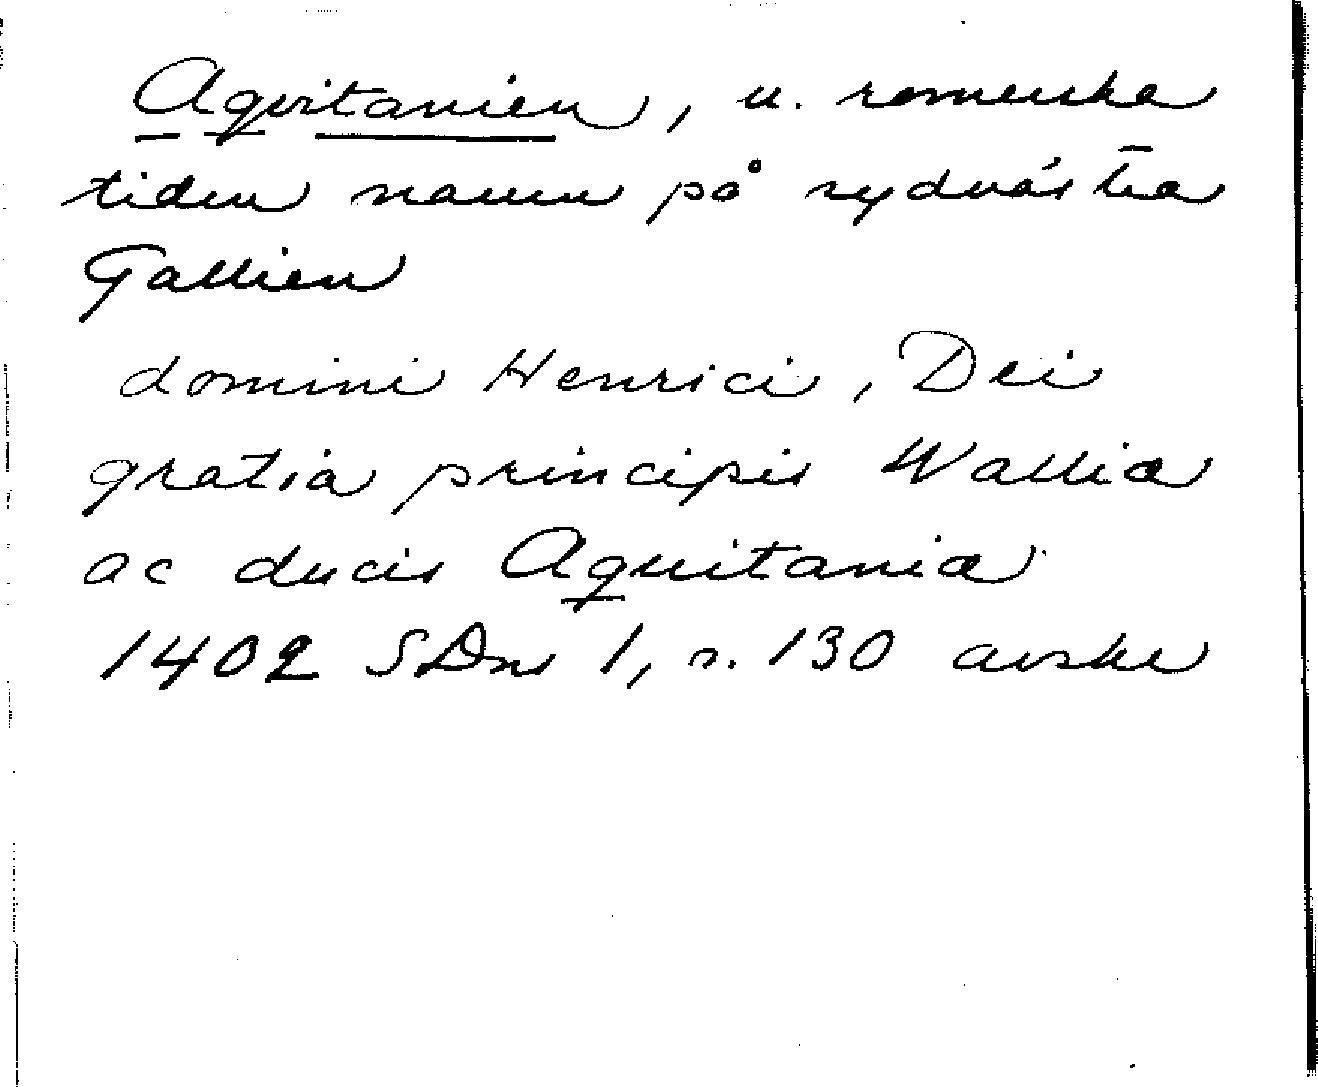 Aqvitanien, u. romerska
tiden namn på sydvästra
Gallien
domini Henrici, Dei
gratia principis Walliæ
ac ducis Aquitaniæ
1402 SDns 1, s. 130 avskr